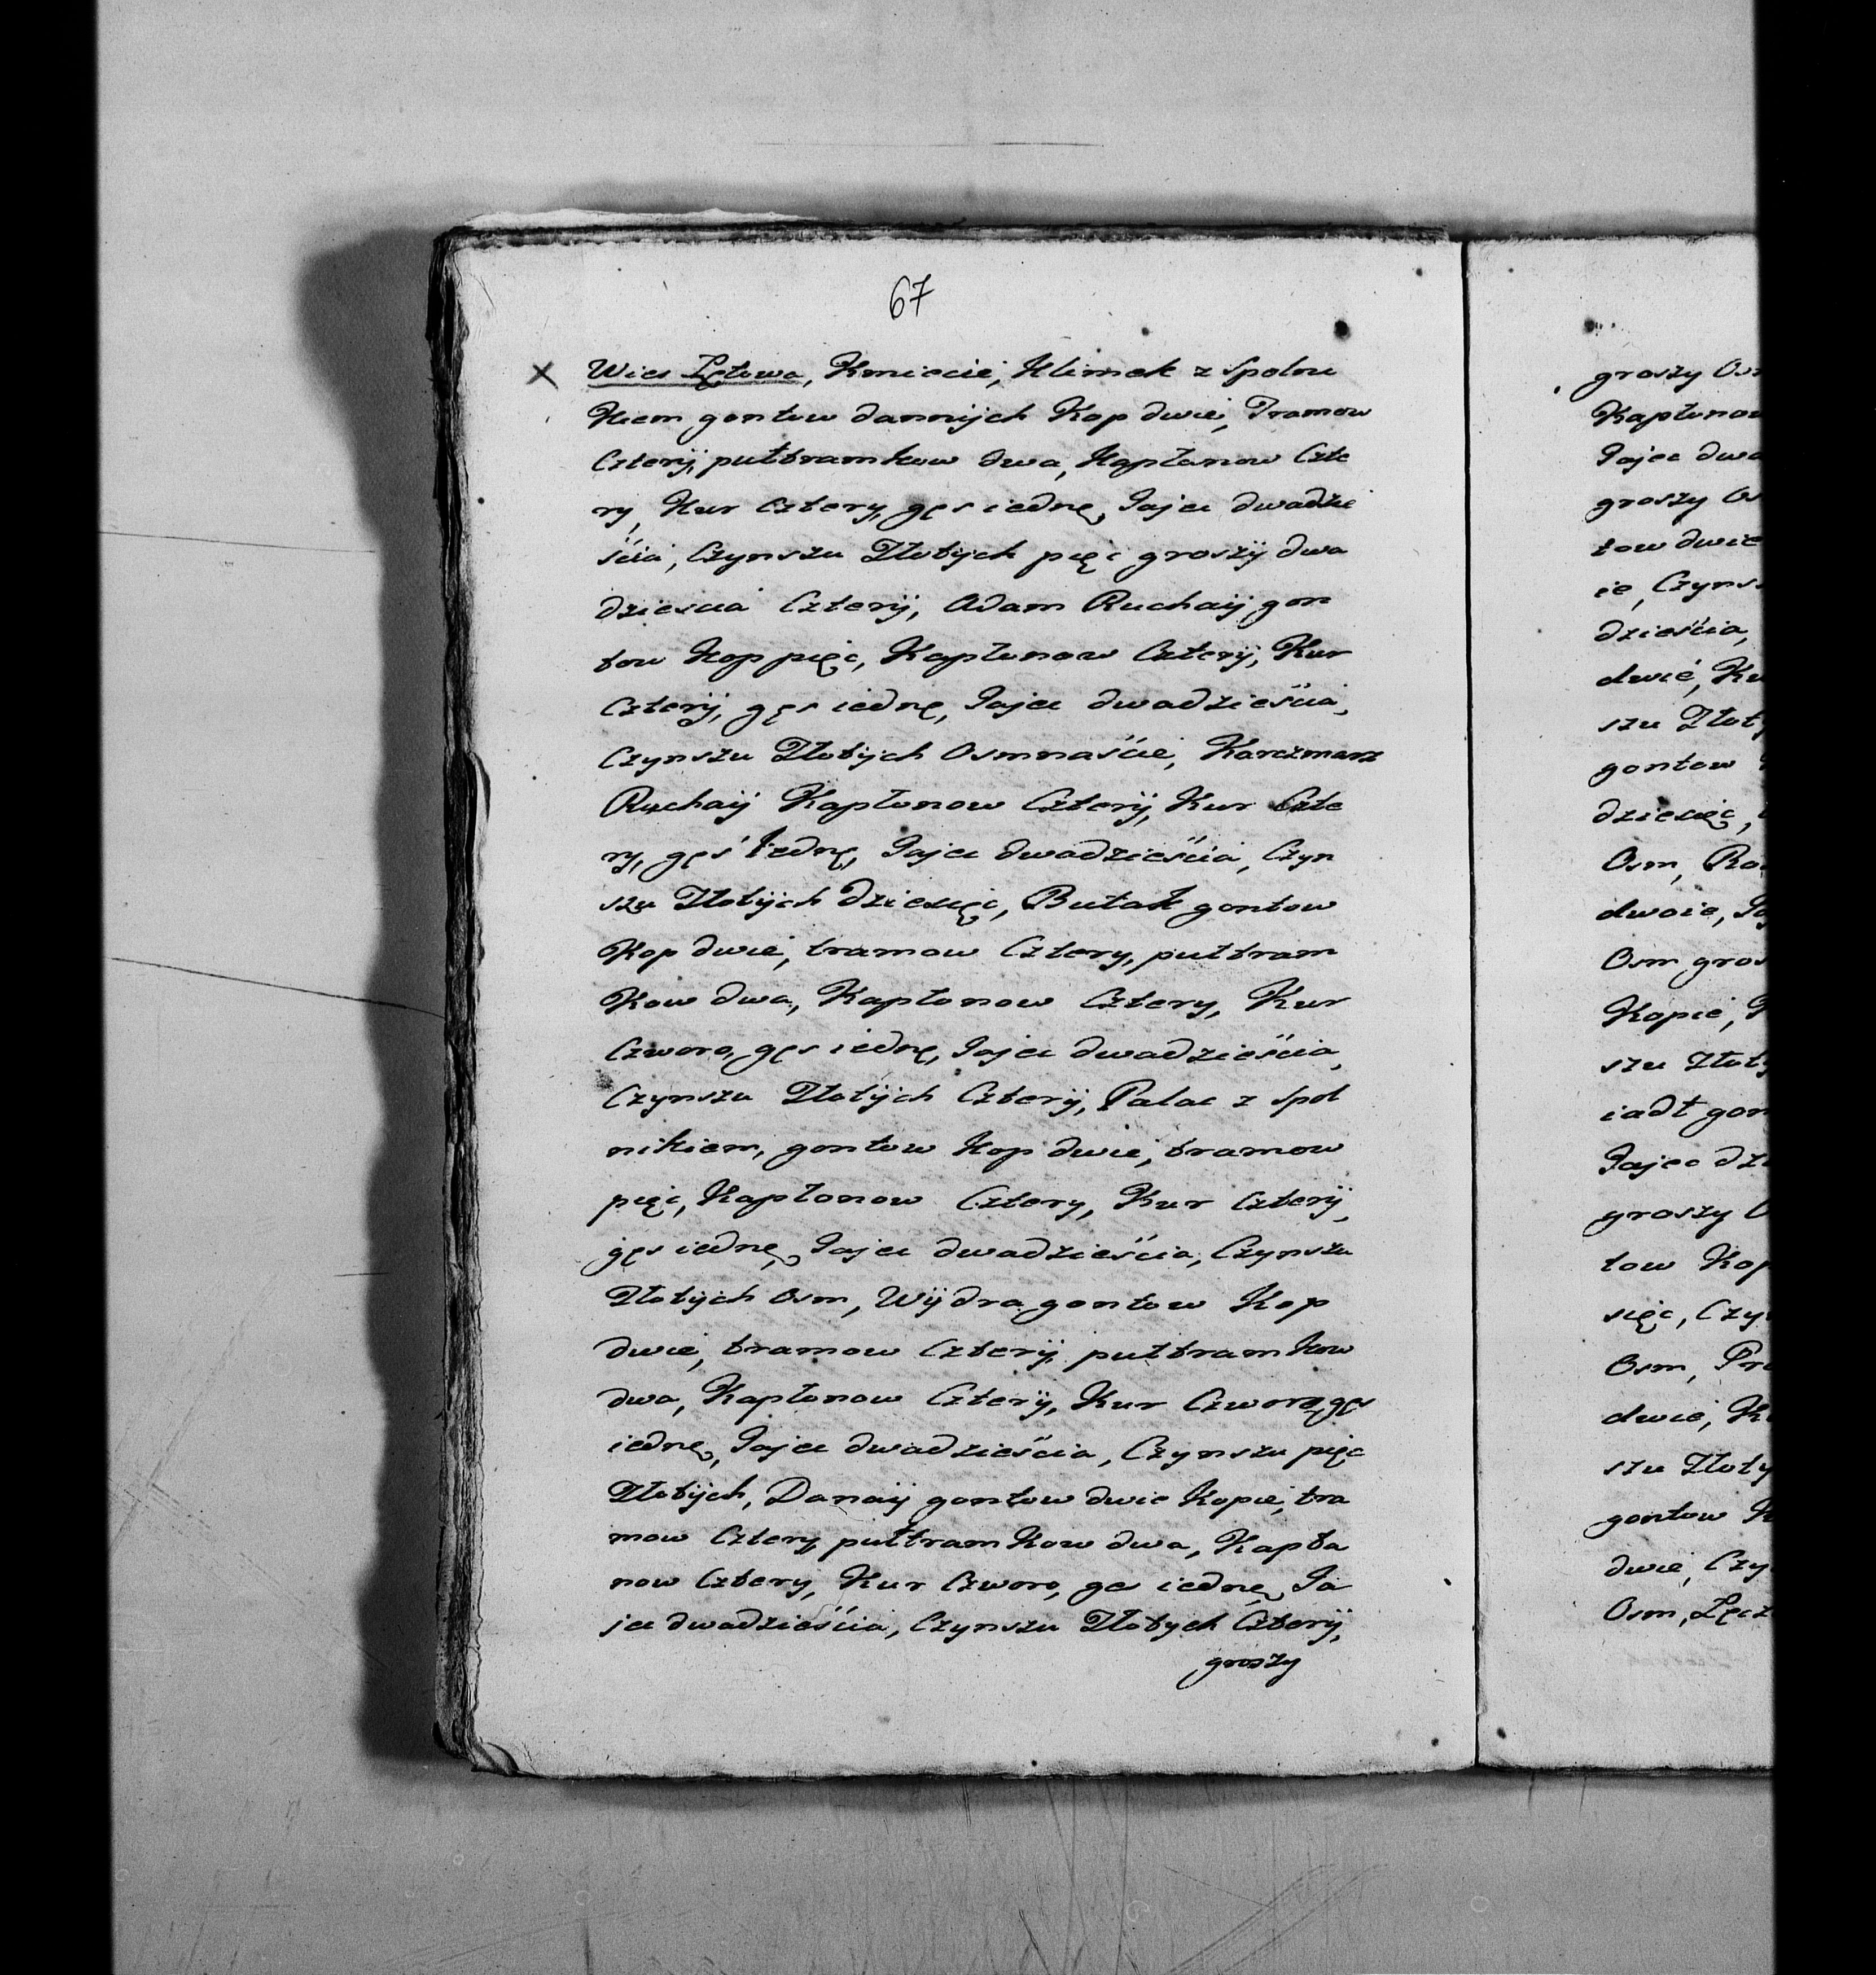 67
x Wies Łętowa, Kmiecie, Klimek z Spolni
Kiem gontow dannijch Kop dwie, Tramow
Czterij, puttramkow dwa, Kapłonow Czte
ry, Kur Cztery, gęs iednę, Jajec dwadzie
ścia, Czynszu Złotÿch pięc groszÿ dwa
dziescia Czterÿ, Adam Ruchaÿ gon
tow Kop pięc, Kapłonow Czterÿ, Kur
Czterÿ, gęs iednę, Jajec dwadzieścia,
Czynszu Złotÿch Osmnaście, Karczmarz
Ruchaÿ Kapłonow Czterÿ, Kur Czte
ry, gęś Jednę, Jajec dwadzieścia, Czyn
szu Złotÿch dziesięc, Butak gontow
Kop dwie, tramow Cztery, puttram
Kow dwa, Kapłonow Cztery, Kur
Czworo, gęs iednę, Jajec dwadzieścia,
Czynszu Złotÿch Czterÿ, Palac z Spol
nikiem, gontow Kop dwie, tramow
pięc, Kapłonow Cztery, Kur Czterÿ,
gęs iednę, Jajec dwadzieścia, Czynszu
Złotÿch Osm, Wÿdra gontow Kop
dwie, tramow Czterÿ, puttramkow
dwa, Kapłonow Czterÿ, Kur Czworo, gęs
iednę, Jajec dwadzieścia, Czynszu pięc
Złotÿch, Danaÿ gontow dwie Kopie, tra
mow Cztery, puttramKow dwa, Kapło
now Cztery, Kur Czworo, gęs iednę, Ja
jec dwadzieścia, Czynszu Złotych Czterÿ,
groszy
groszy
Jajec
groszy
tow dwie
ie,
dzieścia,
dwie,
szu
gontow
dziesięc,
Osm,
dwoie,
Osm
Kopie,
szu
iadł
Jajec
groszy
tow
sięc,
Osm,
dwie,
szu
gontow
dwie,
Osm,